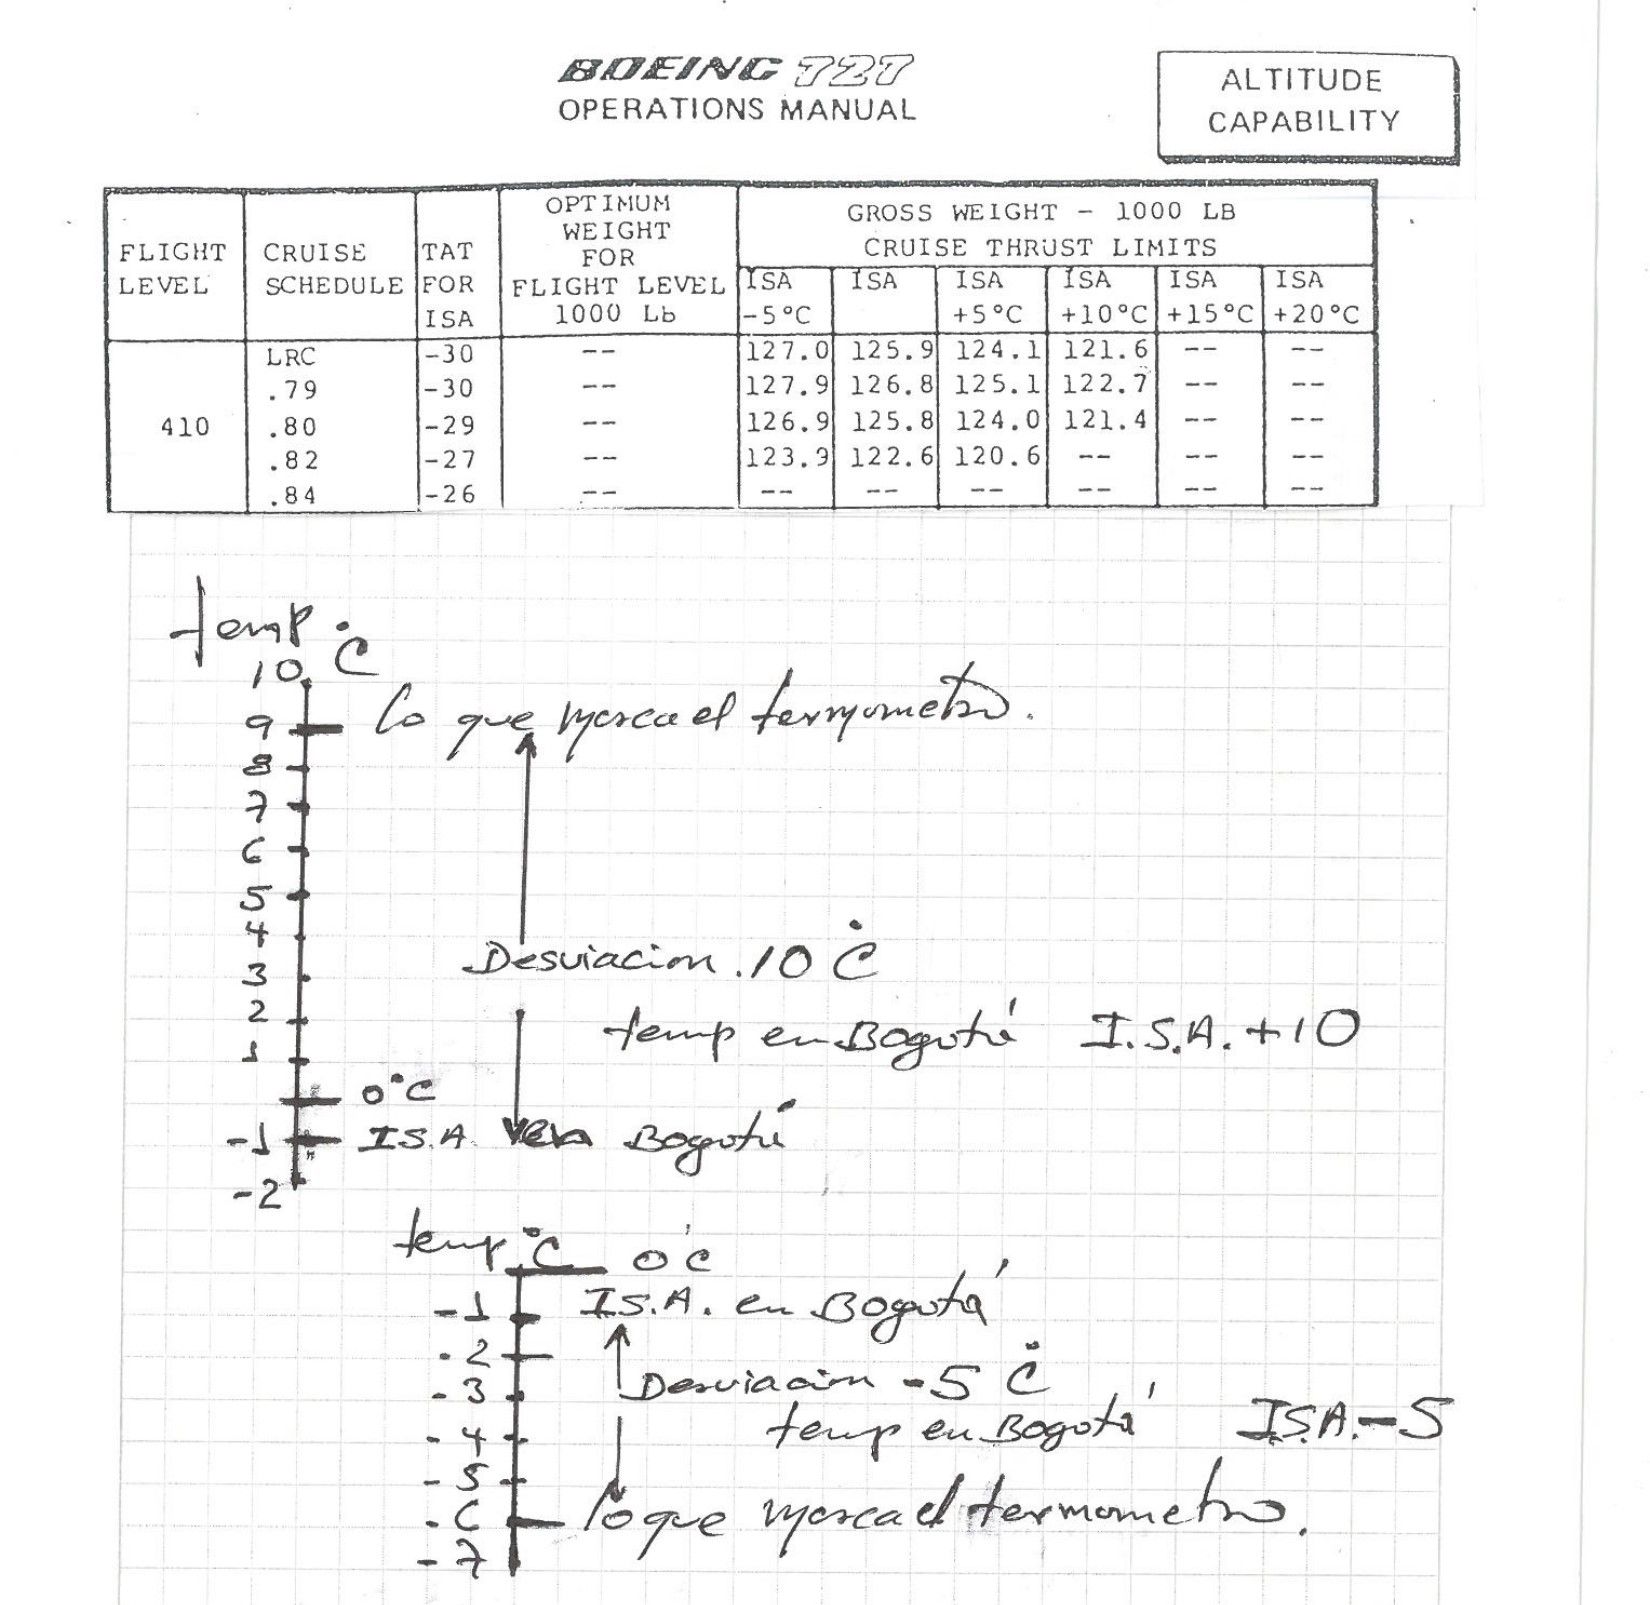 BOEING 727
OPERATIONS MANUAL
ALTITUDE
CAPABILITY
FLIGHT LEVEL CRUISE SCHEDULE TAT FOR ISA OPTIMUM WEIGHT FOR FLIGHT LEVEL 1000 Lb GROSS WEIGHT - 1000 LB
CRUISE THRUST LIMITS
ISA -5°C ISA ISA +5°C ISA +10°C ISA +15°C ISA +20°C
LRC -30 -- 127.0 125.9 124.1 121.6 -- --
.79 -30 -- 127.9 126.8 125.1 122.7 -- --
410 .80 -29 -- 126.9 125.8 124.0 121.4 -- --
.82 -27 -- 123.9 122.6 120.6 -- -- --
.84 -26 -- -- -- -- -- -- --
temp °C
10
9 lo que marca el termometro.
8
7
6
5
4
Desviacion. 10 °C
3
2 temp en Bogotá I.S.A. +10
1
0°C
-1 I.S.A. en Bogotá
-2
temp °C 0°C
-1 I.S.A. en Bogotá
-2
-3 Desviacion -5 °C
-4 temp en Bogotá I.S.A. -5
-5
-6 lo que marca el termometro.
-7